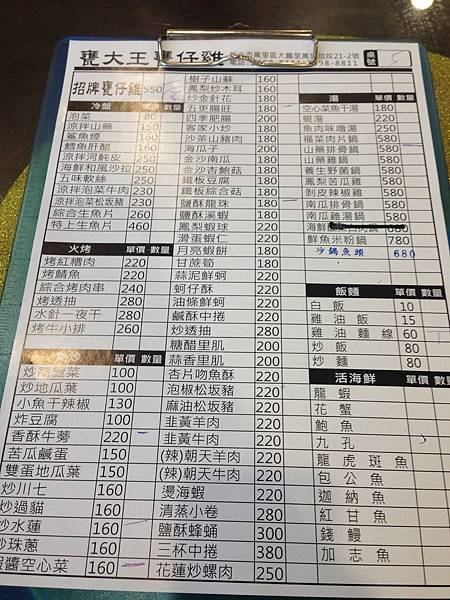 甕大王甕仔雞
萬里區大鵬里萬里加投21-2號
桌號 5
招牌甕仔雞 550
冷盤 單價 數量
泡菜 80
涼拌山藥 150
鯊魚煙 100
鱈魚肝醋 160
涼拌河魨皮 250
海鮮和風沙拉 250
五味軟絲 250
涼拌泡菜牛肉 230
涼拌泡菜松坂豬 230
綜合生魚片 260
特上生魚片 460
火烤 單價 數量
烤紅糟肉 220
烤鯖魚 220
綜合烤肉串 240
烤透抽 280
水針一夜干 280
烤牛小排 260
單價 數量
100
炒地瓜葉 100
小魚干辣椒 130
炸豆腐 100
香酥牛蒡 220
苦瓜鹹蛋 150
雙蛋地瓜葉 150
炒川七 160
炒過貓 160
炒水蓮 160
炒珠蔥 160
蝦醬空心菜 160
樹子山蘇 160
鳳梨炒木耳 160
炒金針花 180
五更腸旺 180
四季肥腸 200
客家小炒 180
沙茶山豬肉 180
海瓜子 200
金沙南瓜 180
金沙杏鮑菇 180
鐵板豆腐 180
鐵板綜合菇 180
鹽酥龍珠 180
鹽酥溪蝦 180
鳳梨蝦球 220
滑蛋蝦仁 220
月亮蝦餅 180
甘蔗筍 180
蒜泥鮮蚵 220
蚵仔酥 220
油條鮮蚵 220
鹹酥中捲 220
炒透抽 280
糖醋里肌 200
蒜香里肌 200
杏片吻魚酥 220
泡椒松坂豬 220
麻油松坂豬 220
韭黃羊肉 220
韭黃牛肉 220
(辣)朝天羊肉 220
(辣)朝天牛肉 220
燙海蝦 220
清蒸小卷 280
鹽酥蜂蛹 300
三杯中捲 380
花蓮炒螺肉 250
湯 單價 數量
空心菜魚干湯 180
蜆湯 220
魚肉味噌湯 250
福菜肉片鍋 580
山藥排骨鍋 580
山藥雞鍋 580
養生野菌鍋 580
鳳梨苦瓜雞 580
剝皮辣椒雞 580
南瓜排骨鍋 580
南瓜雞湯鍋 580
鮮魚米粉鍋 780
沙鍋魚頭 680
飯麵 單價 數量
白飯 10
雞油飯 15
雞油麵線 60
炒飯 80
炒麵 80
活海鮮 單價 數量
龍蝦
花蟹
鮑魚
九孔
龍虎斑魚
包公魚
迦納魚
紅甘魚
錢鰻
加志魚